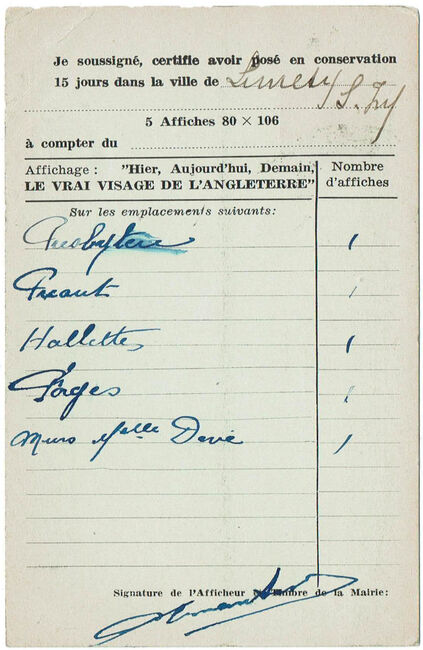 Je soussigné, certifie avoir posé en conservation
15 jours dans la ville de
5 Affiches 80 × 106
à compter du
Affichage : "Hier, Aujourd'hui, Demain, LE VRAI VISAGE DE L'ANGLETERRE"
Nombre d'affiches
Sur les emplacements suivants:
Presbytère 1
Préaut 1
Hallettes 1
Forges 1
Murs Melle 1
Signature de l'Afficheur Timbre de la Mairie: